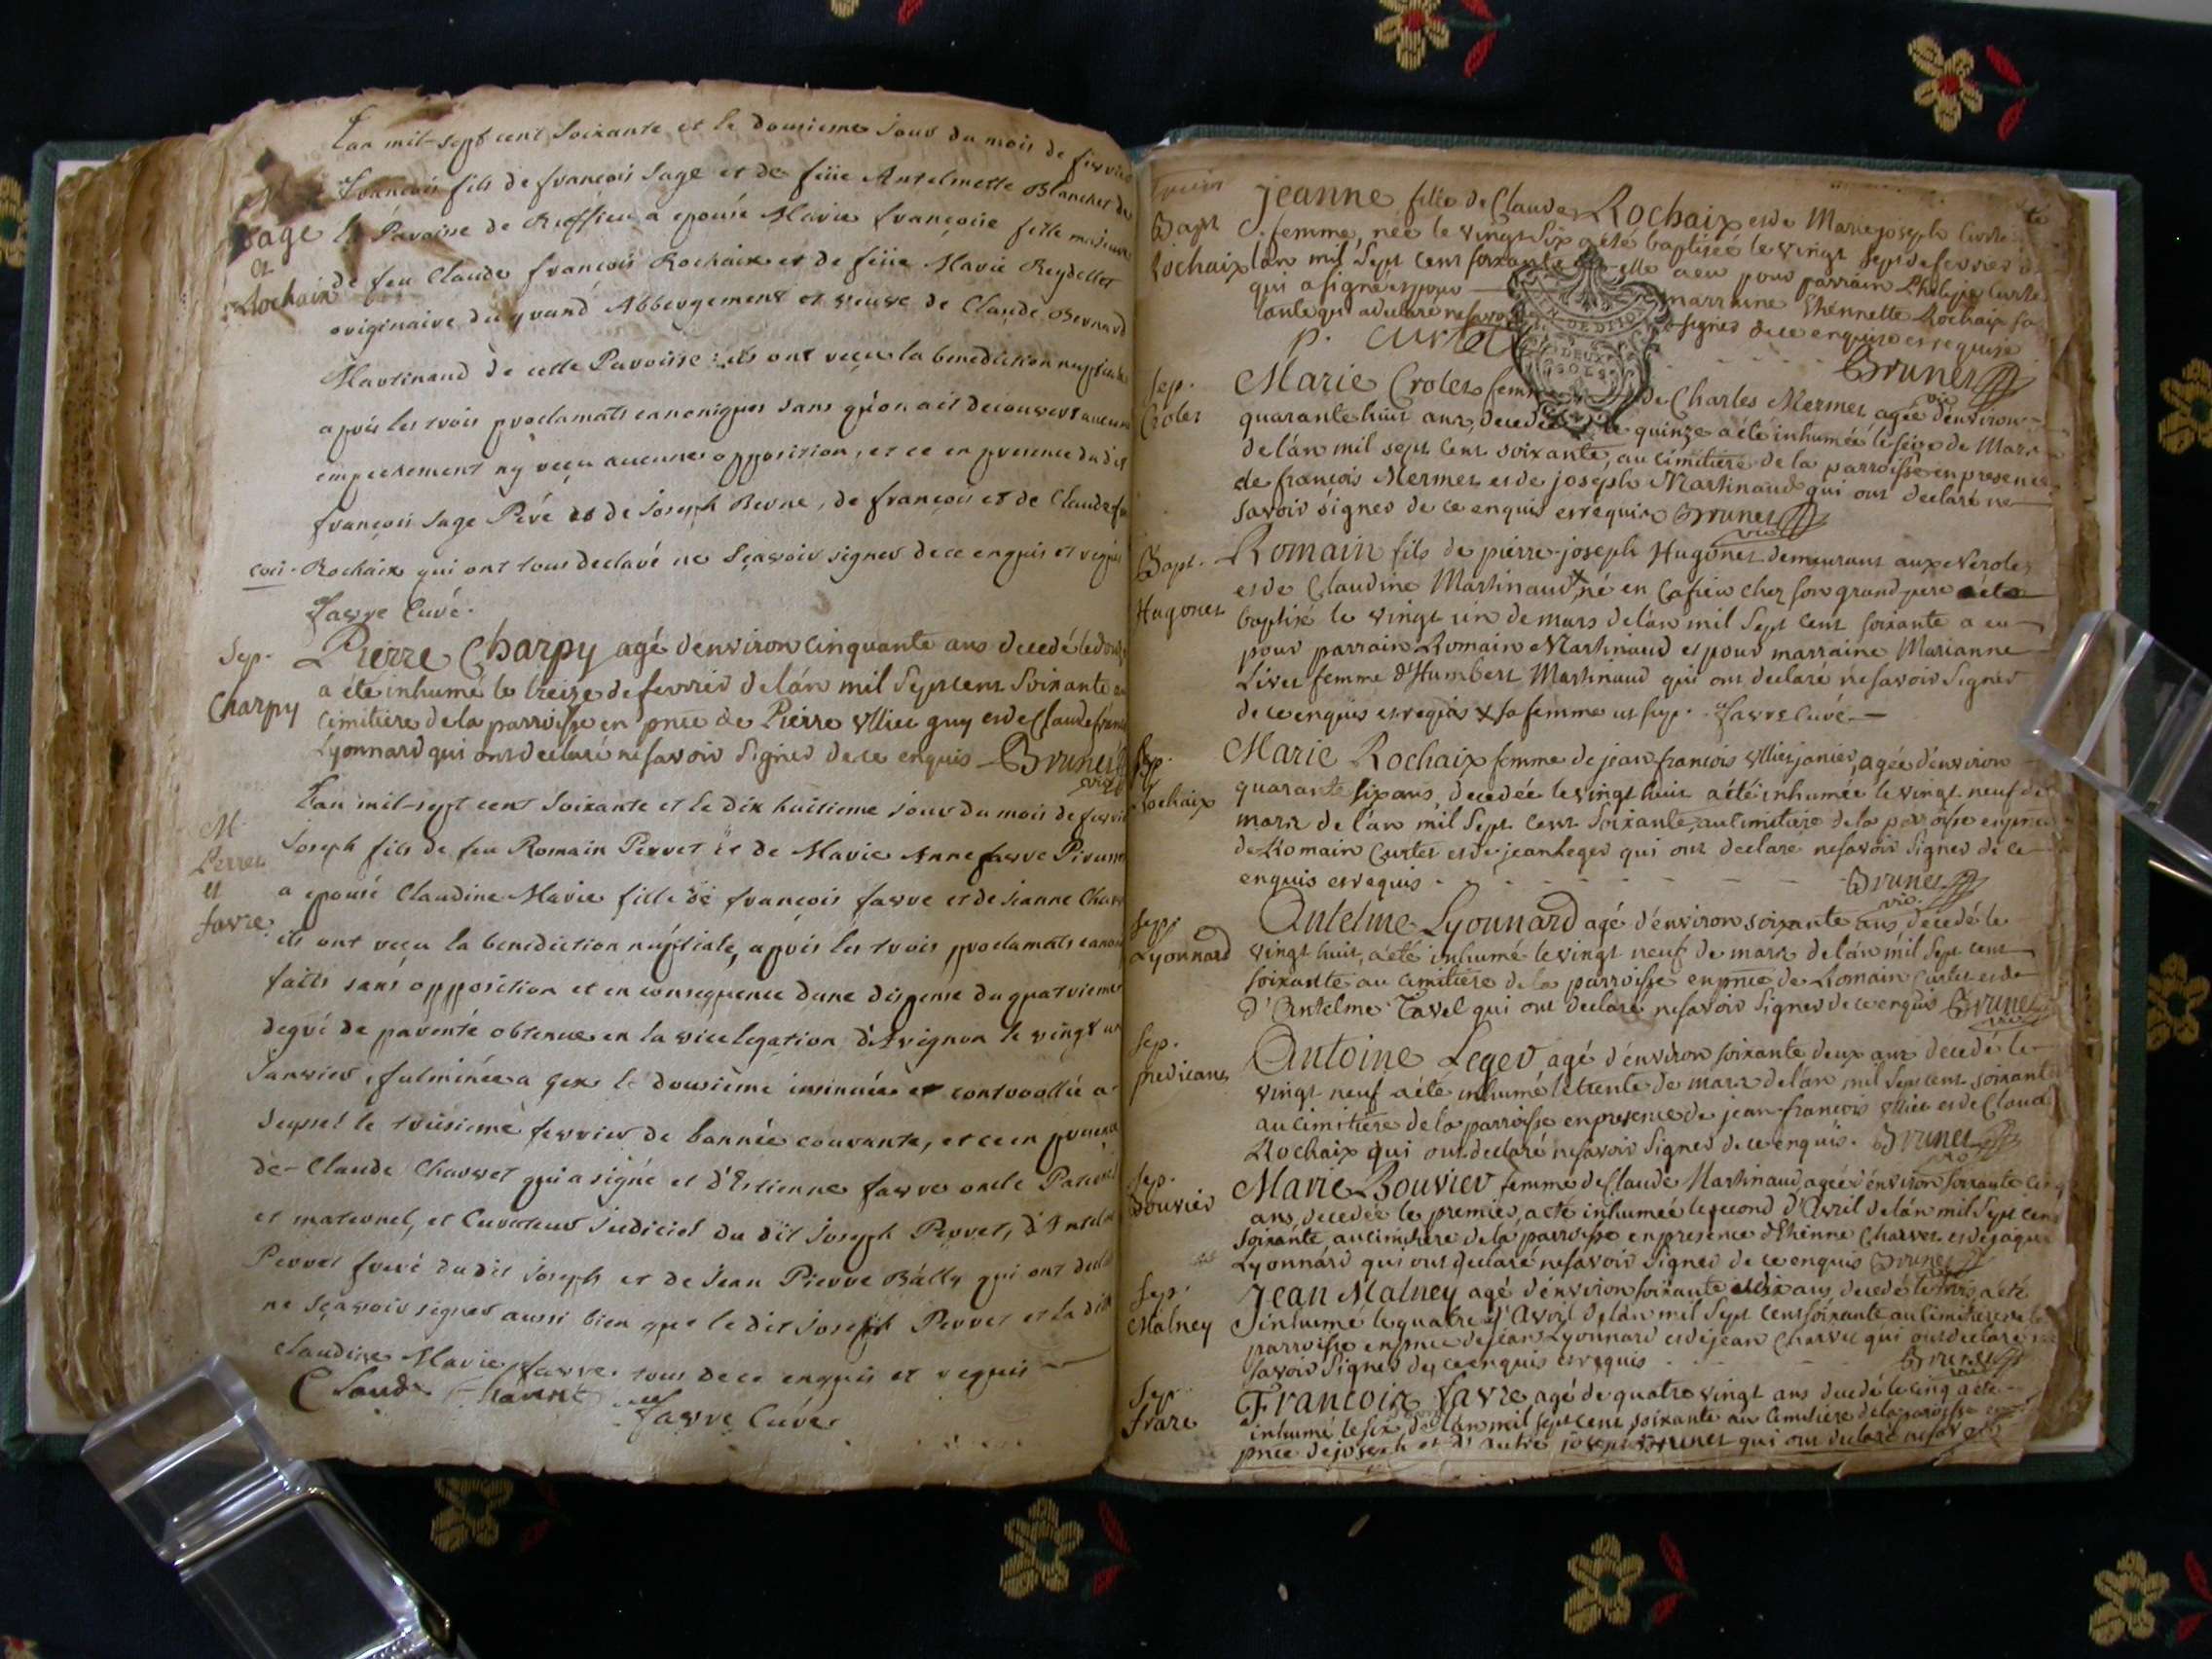 L'an mil-sept cent soixante et le douzieme jour du mois de fevrier
M
François fils de françois Sage et de feüe Antelmette Blanchet de
Sage
la Paroisse de Ruffieu a epousé Marie françoise fille majeure
et
Rochaix
de feu Claude françois Rochaix et de feüe Marie Reydellet
originaire du grand Abbergement et veuve de Claude Bernard
Martinand de cette Paroisse: ils ont reçu la benediction nuptiale
après les trois proclamats canoniques sans qu'on ait decouvert aucun
empechement ny reçu aucune opposition, et ce en presence du dit
françois Sage Pere et de Joseph Berne, de françois et de Claude
Rochaix qui ont tous declaré ne sçavoir signer de ce enquis et requis
favre Curé.
Sep.
Charpy
Pierre Charpy agé d'environ cinquante ans decedé le
a été inhumé le treize de fevrier de l'an mil sept cent soixante au
cimitiere de la parroisse en pnce de Pierre Ulliet guy et de Claude
Lyonnard qui ont declaré ne savoir signer de ce enquis Brunet
vic.
M
Perret
et
favre
L'an mil-sept cent soixante et le dix huitieme jour du mois de fevrier
Joseph fils de feu Romain Perret et de Marie Anne favre
a epousé Claudine Marie fille de françois favre et de Jeanne
ils ont reçu la benediction nuptiale, après les trois proclamats
faits sans opposition et en consequence d'une dispense du quatrieme
degré de parenté obtenue en la vicelegation d'Avignon le vingt un
Janvier, fulminée a Gex le douzieme insinuée et controollée a
Seyssel le troisieme fevrier de l'année courante, et ce en presence
de Claude Charvet qui a signé et d'Estienne favre oncle Paternel
et maternel, et Curateur Judiciel du dit Joseph Perret, d'Antelme
Perret frere du dit Joseph et de Jean Pierre Bally qui ont declaré
ne sçavoir signer aussi bien que le dit Joseph Perret et la dite
Claudine Marie favre tous de ce enquis et requis
Claude Charvet favre Curé
Bapt
Rochaix
Jeanne fille de Claude Rochaix et de Marie joseph Curtet
femme, née le vingt six a été baptisée le vingt sept de fevrier de
l'an mil sept cent soixante elle a eu pour parrain Philippe Curtet
qui a signé et pour marraine Ethiennette Rochaix sa
tante qui a declaré ne savoir signer de ce enquise et requise
p. curtet
Brunet
vic
DEUX
SOLS
Sep.
Crolet
Marie Crolet femme de Charles Mermet agée d'environ
quarante huit ans, decedée le quinze a été inhumée le seize de Mars
de l'an mil sept cent soixante, au cimitiere de la parroisse en presence
de françois Mermet et de joseph Martinaud qui ont declaré ne
savoir signer de ce enquis et requis Brunet
vic
Bapt.
Hugonet
Romain fils de pierre-joseph Hugonet demeurant aux Verolet
et de Claudine Martinaud né en Cafieu chez son grand pere a été
baptisé le vingt un de mars de l'an mil sept cent soixante a eu
pour parrain Romain Martinaud et pour marraine Marianne
Livet femme d'Humbert Martinaud qui ont declaré ne savoir signer
de ce enquis et requis x sa femme ut sup. favre Curé.
Sep.
Rochaix
Marie Rochaix femme de jean francois Ulliet janier, agée d'environ
quarante six ans, decedée le vingt huit a été inhumée le vingt neuf de
mars de l'an mil sept cent soixante, au cimitiere de la parroisse en pnce
de Romain Curtet et de jean Leger qui ont declaré ne savoir signer de ce
enquis et requis
Brunet
vic.
Sep.
Lyonnard
Antelme Lyonnard agé d'environ soixante ans, decedé le
vingt huit, a été inhumé le vingt neuf de mars de l'an mil sept cent
soixante au cimitiere de la parroisse en pnce de Romain Curtet et de
d'Antelme Tavel qui ont declaré ne savoir signer de ce enquis Brunet
vic
Sep.
Antoine Leger agé d'environ soixante deux ans decedé le
vingt neuf a été inhumé le trente de mars de l'an mil sept cent soixante
au cimitiere de la parroisse en presence de jean-francois Ulliet et de Claude
Rochaix qui ont declaré ne savoir signer de ce enquis. Brunet
vic
Sep.
Bouvier
Marie Bouvier femme de Claude Martinaud agée d'environ soixante cinq
ans, decedée le premier, a été inhumée le second d'Avril de l'an mil sept cent
soixante au cimitiere de la parroisse en presence d'Ethienne Charvet et de jaque
Lyonnard qui ont declaré ne savoir signer de ce enquis Brunet
Sep.
Malney
Jean Malney agé d'environ soixante et dix ans, decedé le trois, a été
inhumé le quatre d'Avril de l'an mil sept cent soixante au cimitiere de la
parroisse en pnce de jean Lyonnard et de jean Charvet qui ont declaré ne
savoir signer de ce enquis et requis
Brunet
vic
Sep.
francois favre agé de quatre vingt ans decedé le cinq a été
inhumé le six de l'an mil sept cent soixante au cimitiere de la paroisse en
pnce de joseph et d'autre joseph Brunet qui ont declaré ne savoir